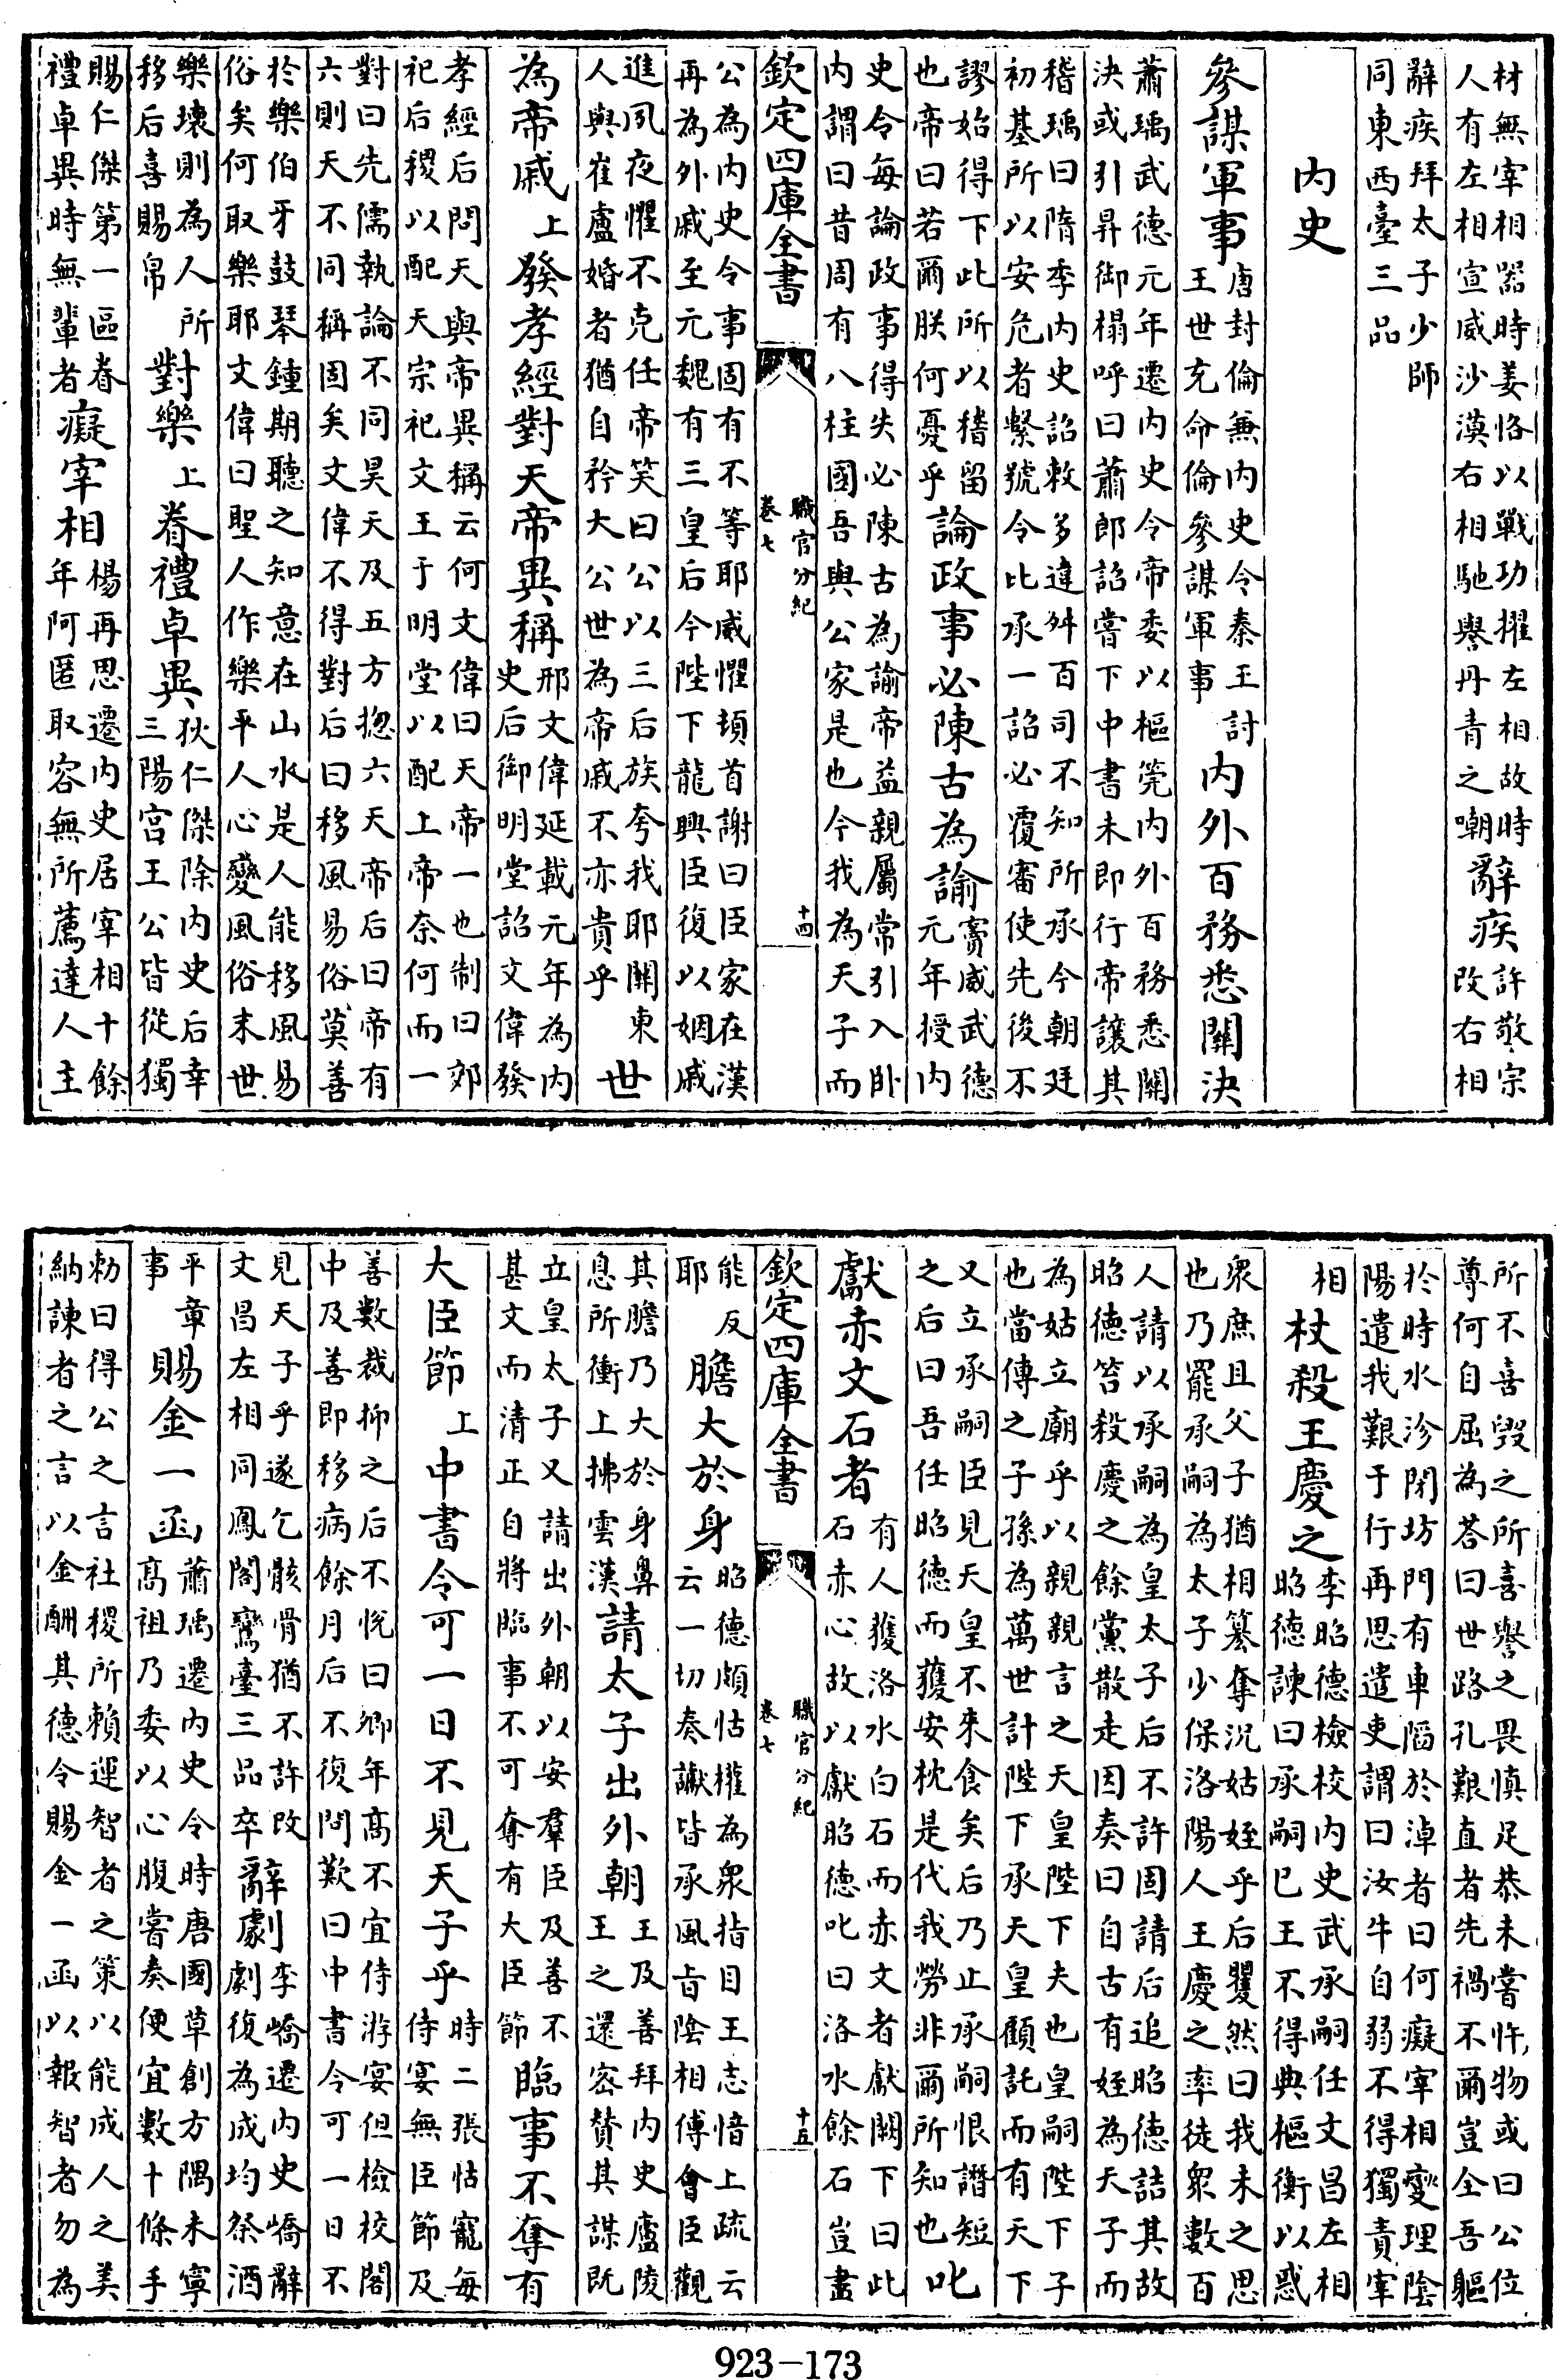 材無宰相器時姜恪以戰功擢左相故時人有左相宣威沙漠右相馳譽丹青之嘲辭疾許敬宗改右相
辭疾拜太子少師同東西臺三品
内史
參謀軍事唐封倫兼内史令秦王討王世充命倫參謀軍事内外百務悉關決
蕭瑀武德元年遷内史令帝委以樞筦内外百務悉關決或引昇御榻呼曰蕭郎詔嘗下中書未即行帝讓其
稽瑀曰隋季内史詔敕多違舛百司不知所承今朝廷初基所以安危者繫號令比承一詔必覆審使先後不
謬始得下此所以稽留也帝曰若爾朕何憂乎論政事必陳古為諭竇威武德元年授内
史令每論政事得失必陳古為諭帝益親屬常引入卧内謂曰昔周有八柱國吾與公家是也今我為天子而
欽定四庫全書 職官分紀 卷七 十四
公為内史令事固有不等耶威懼頓首謝曰臣家在漢再為外戚至元魏有三皇后今陛下龍興臣復以姻戚
進夙夜懼不克任帝笑曰公以三后族夸我耶關東人與崔盧婚者猶自矜大公世為帝戚不亦貴乎世
為帝戚上發孝經對天帝異稱邢文偉延載元年為内史后御明堂詔文偉發
孝經后問天與帝異稱云何文偉曰天帝一也制曰郊祀后稷以配天宗祀文王于明堂以配上帝奈何而一
對曰先儒執論不同昊天及五方揔六天帝后曰帝有六則天不同稱固矣文偉不得對后曰移風易俗莫善
於樂伯牙鼓琴鍾期聽之知意在山水是人能移風易俗矣何取樂耶文偉曰聖人作樂平人心變風俗末世
樂壞則為人所移后喜賜帛對樂上眷禮卓異狄仁傑除内史后幸三陽宫王公皆從獨
賜仁傑第一區眷禮卓異時無輩者癡宰相楊再思遷内史居宰相十餘年阿匿取容無所薦達人主
所不喜毁之所喜譽之畏慎足恭未嘗忤物或曰公位尊何自屈為荅曰世路孔艱直者先禍不爾豈全吾軀
於時水沴閉坊門有車陷於淖者曰何癡宰相變理陰陽遣我艱于行再思遣吏謂曰汝牛自弱不得獨責宰
相杖殺王慶之李昭德檢校内史武承嗣任文昌左相昭德諫曰承嗣巳王不得典樞衡以惑
衆庶且父子猶相簒奪況姑姪乎后矍然曰我未之思也乃罷承嗣為太子少保洛陽人王慶之率徒衆數百
人請以承嗣為皇太子后不許固請后追昭德詰其故昭德笞殺慶之餘黨散走因奏曰自古有姪為天子而
為姑立廟乎以親親言之天皇陛下夫也皇嗣陛下子也當傳之子孫為萬世計陛下承天皇顧託而有天下
又立承嗣臣見天皇不來食矣后乃止承嗣恨譖短之后曰吾任昭德而獲安枕是代我勞非爾所知也叱
獻赤文石者有人獲洛水白石而赤文者獻闕下曰此石赤心故以獻昭德叱曰洛水餘石豈盡
欽定四庫全書 職官分紀 卷七 十五
能反耶膽大於身昭德頗怙權為衆指目王志愔上疏云云一切奏讞皆承風旨陰相傅會臣觀
其膽乃大於身鼻息所衝上拂雲漢請太子出外朝王及善拜内史盧陵王之還密贊其謀既
立皇太子又請出外朝以安羣臣及善不甚文而清正自將臨事不可奪有大臣節臨事不奪有
大臣節上中書令可一日不見天子乎時二張怙寵每侍宴無臣節及
善數裁抑之后不悦曰卿年高不宜侍游宴但檢校閤中及善即移病餘月后不復問歎曰中書令可一日不
見天子乎遂乞骸骨猶不許改文昌左相同鳳閣鸞臺三品卒辭劇李嶠遷内史嶠辭劇復為成均祭酒
平章事賜金一函蕭瑀遷内史令時唐國草創方隅未寧高祖乃委以心腹嘗奏便宜數十條手
勅曰得公之言社稷所賴運智者之策以能成人之美納諫者之言以金酬其德今賜金一函以報智者勿為
923-173